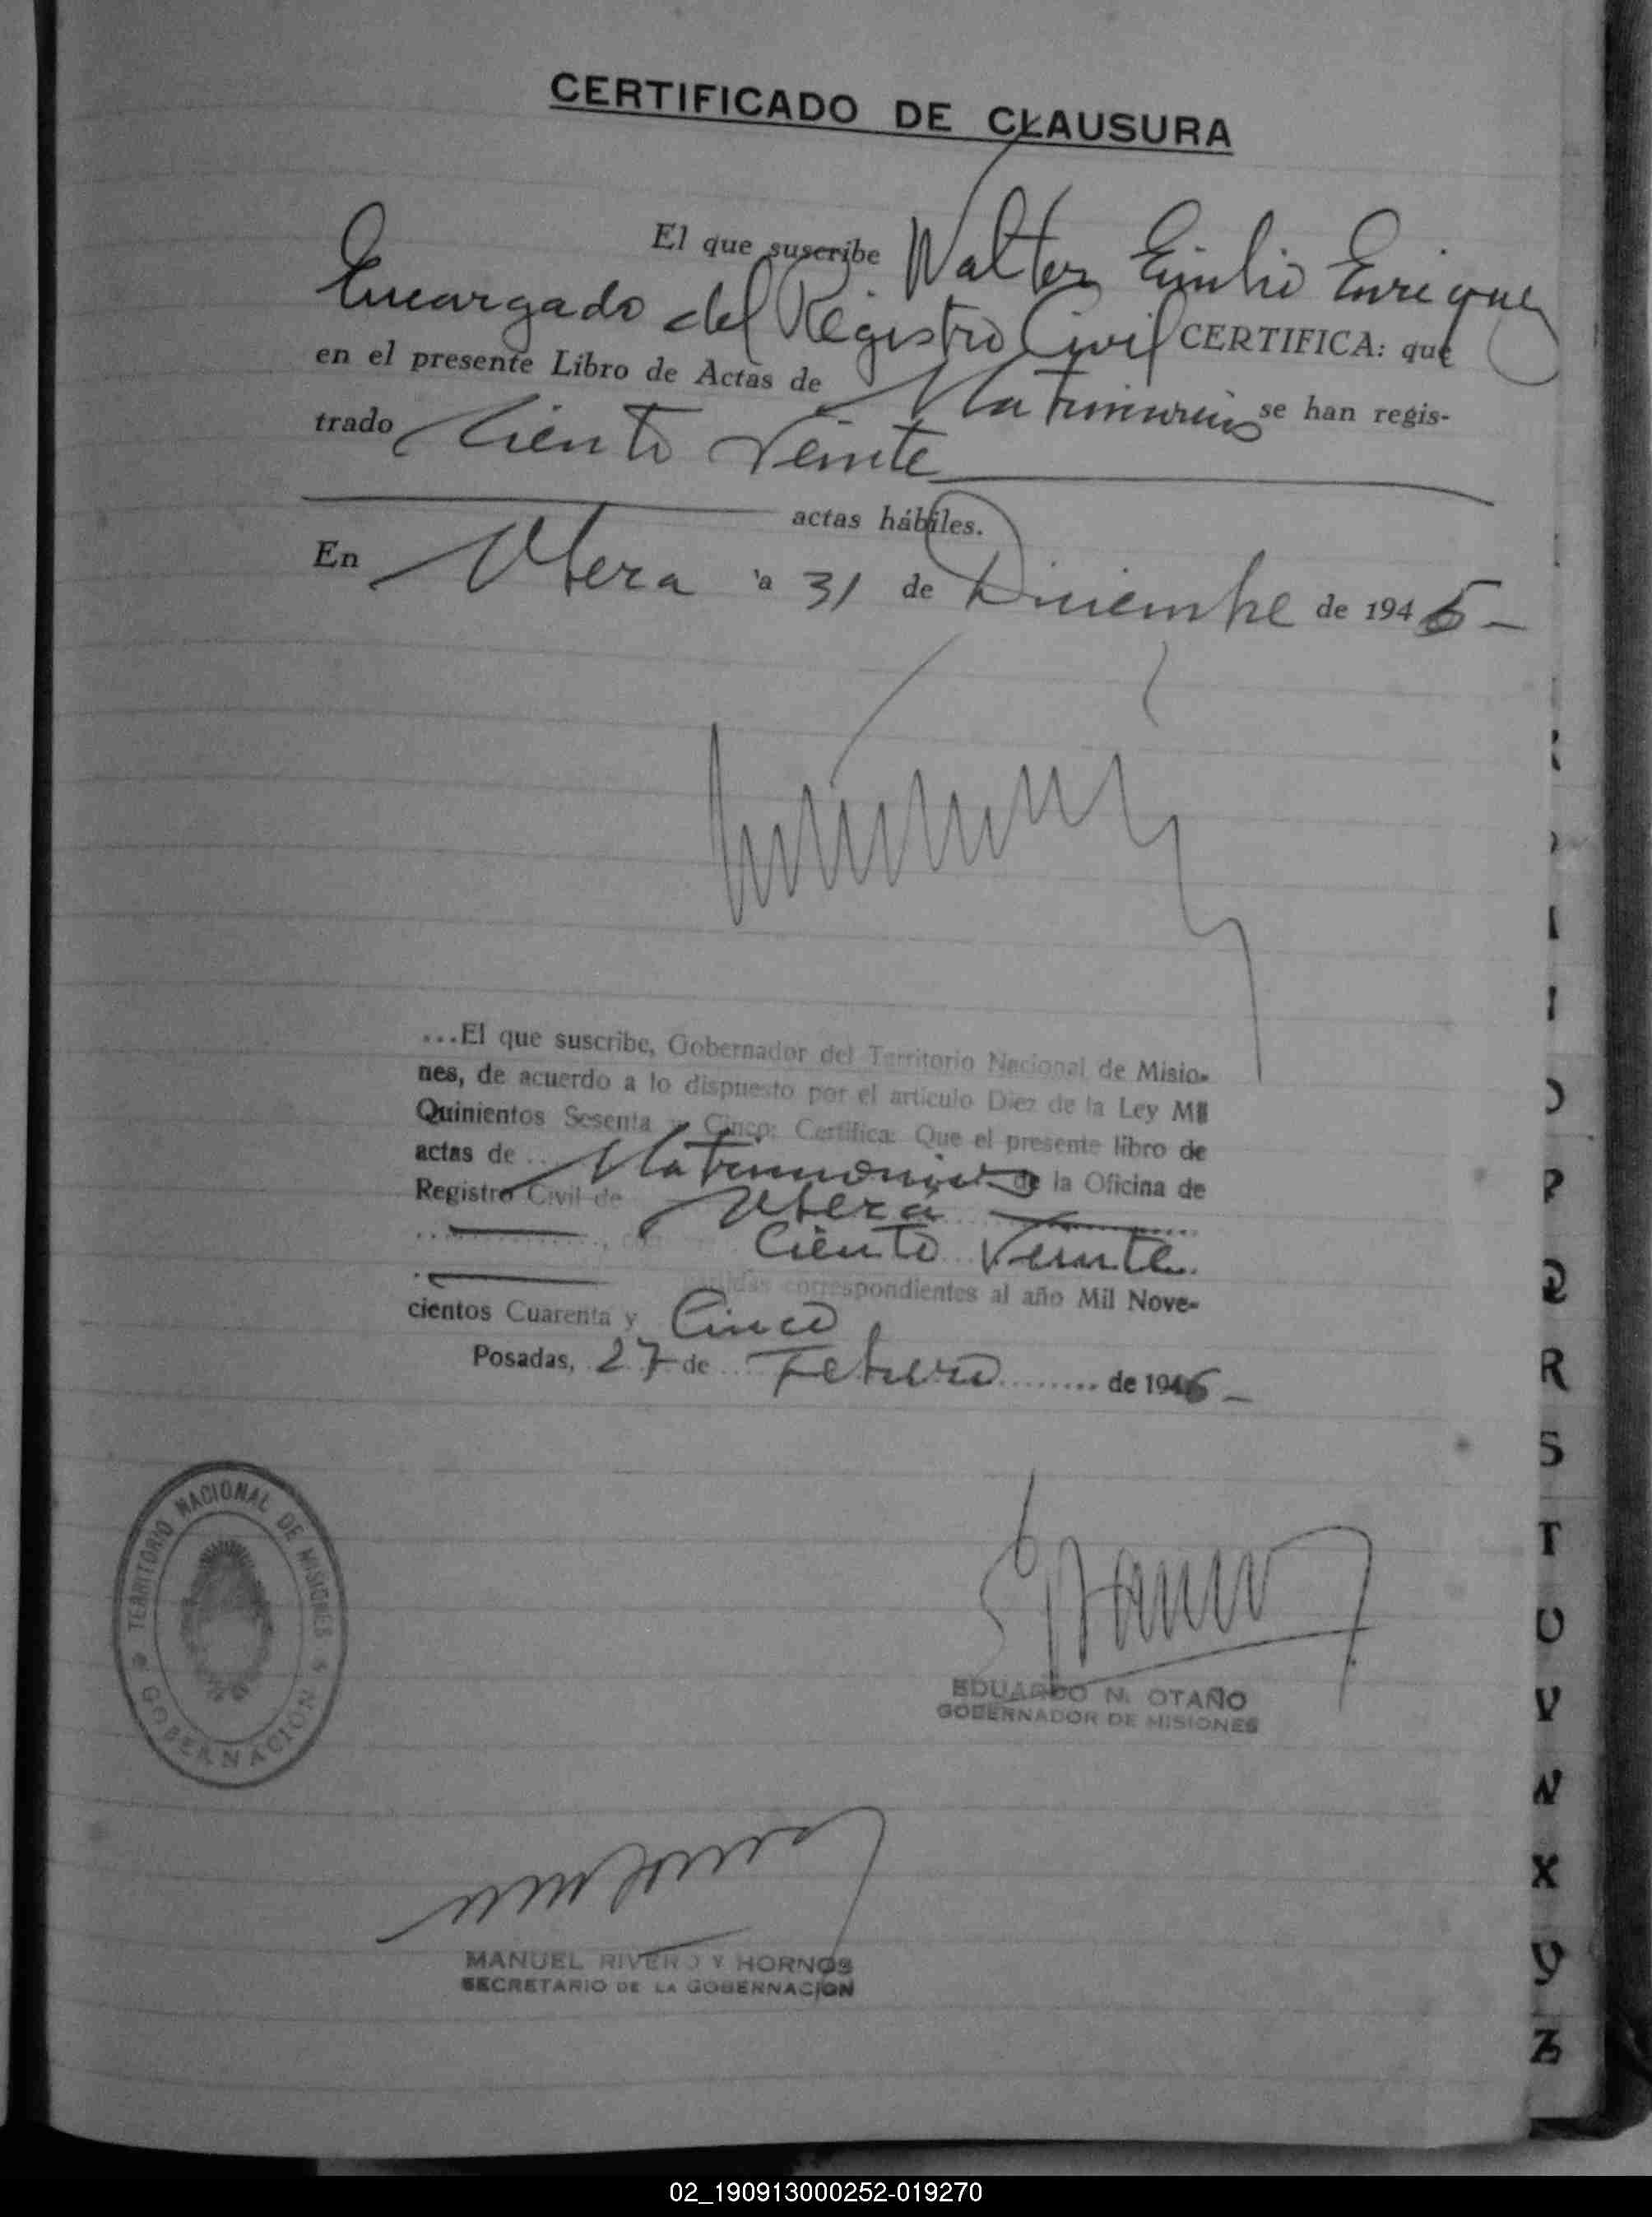 CERTIFICADO DE CLAUSURA
El que suscribe Walter Emilio Enriquez
Encargado del Registro Civil CERTIFICA: que
en el presente Libro de Actas de Matrimonios se han regis-
trado Ciento Veinte
actas hábiles.
En Obera a 31 de Diciembre de 1945
...El que suscribe, Gobernador del Territorio Nacional de Misio-
nes, de acuerdo a lo dispuesto por el artículo Diez de la Ley Mil
Quinientos Sesenta y Cinco: Certifica: Que el presente libro de
actas de Matrimonios de la Oficina de
Registro Civil de Obera
Ciento Veinte
partidas correspondientes al año Mil Nove-
cientos Cuarenta y Cinco
Posadas, 27 de Febrero de 1946
TERRITORIO NACIONAL DE MISIONES
GOBERNACION
EDUARDO N. OTAÑO
GOBERNADOR DE MISIONES
MANUEL RIVERO Y HORNOS
SECRETARIO DE LA GOBERNACION
P
Q
R
S
T
U
V
X
Y
Z
02_190913000252-019270